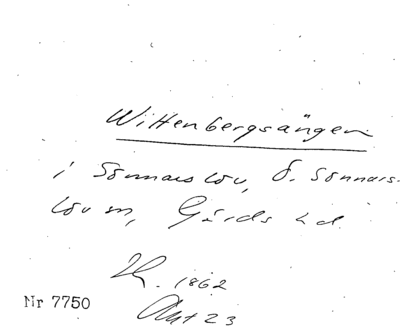 Wittenbergsängen
i Sönnarslöv, Ö. Sönnars-
löv sn, Gärds hd.
1862
Akt 23
Nr 7750